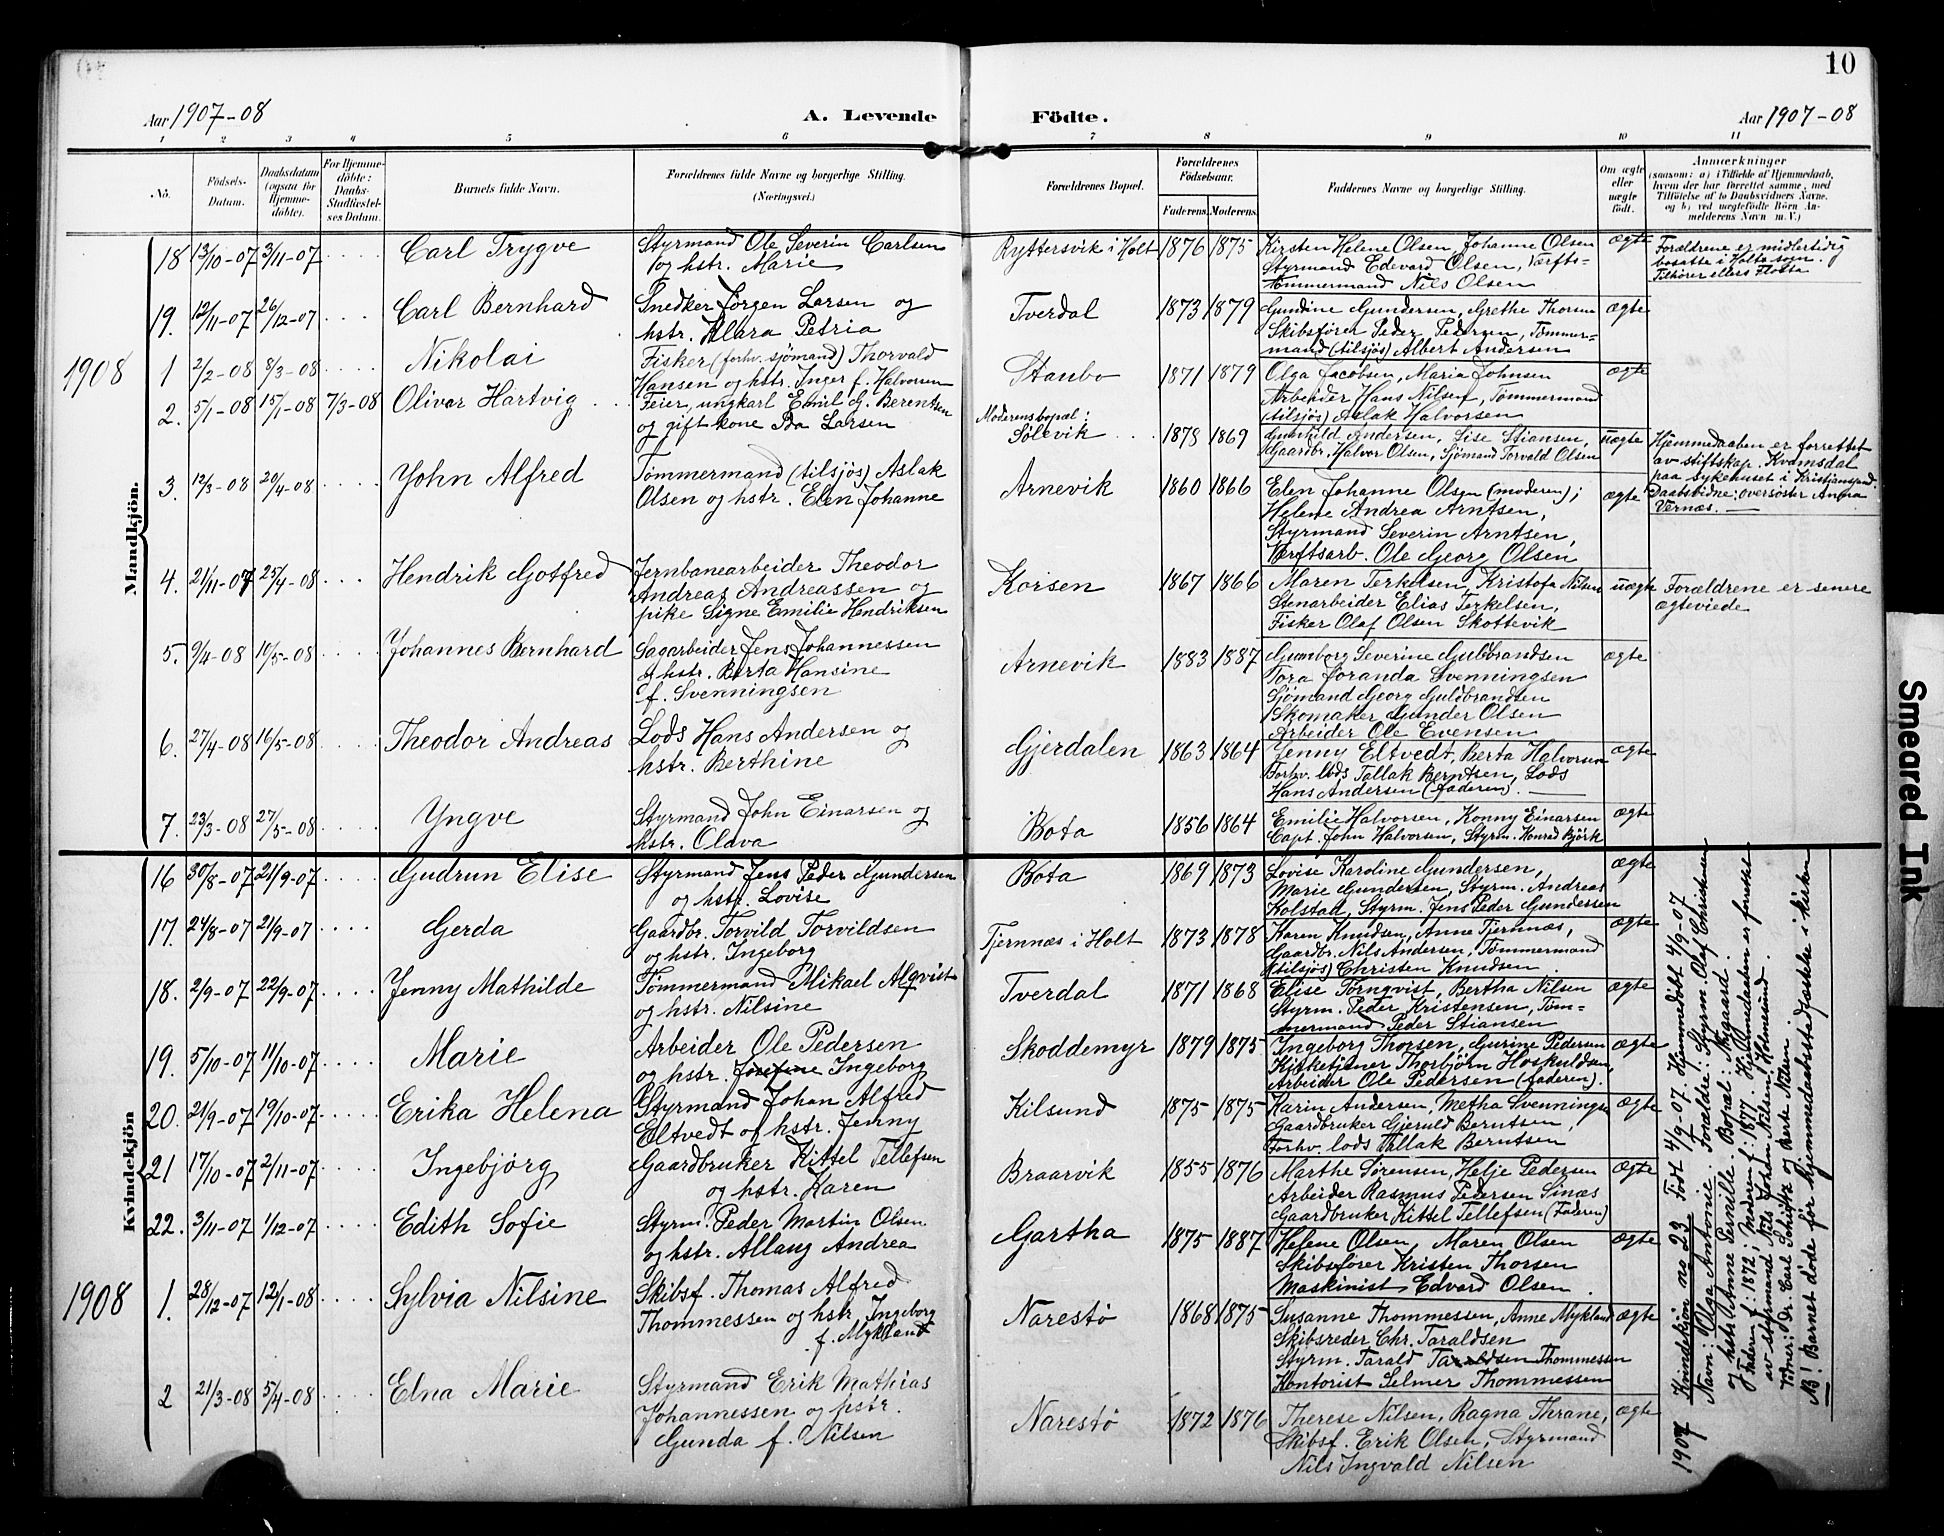 10
Aar 1907-08
A. Levende Födte.
Aar 1907-08
1 2 3 4 5 6 7 8 9 10 11
No.
Födsels-Datum.
Daabsdatum (ogsaa for Hjemme-döbte).
For Hjemme-döbte: Daabs-Stadfæstel-ses Datum.
Barnets fulde Navn.
Forældrenes fulde Navne og borgerlige Stilling. (Næringsvei.)
Forældrenes Bopæl.
Forældrenes Födselsaar.
Faderens. Moderens.
Faddernes Navne og borgerlige Stilling.
Om ægte eller uægte födt.
Anmærkninger
(saasom: a) i Tilfælde af Hjemmedaab,
hvem der har forrettet samme, med
Tilföielse af to Daabsvidners Navne.
og b) ved uægtefödte Börn An-
melderens Navn m. V.)
Mandkjön.
18 13/10-07 3/11-07 Carl Trygve
Styrmand Ole Severin Carlsen
og hstr. Marie
Ryttersvik i Holt 1876 1875
Kirsten Helene Olsen, Johanne Olsen
Styrmand Edevard Olsen, Værfts-
tømmermand Nils Olsen
ægte
Forældrene er midlertidig
bosatte i Holts sogn.
Tilhører ellers Flosta
19. 12/11-07 26/12-07 Carl Bernhard
Snedker Jørgen Larsen og
hstr. Klara Petria
Tverdal 1873 1879
Gundine Gundersen, Grethe Thorsen
Skibsfören Peder Pedersen, Tömmer-
mand (tilsjös) Albert Andersen
ægte
1908
1 2/2-08 8/3-08 Nikolai
Fisker (forhv. sjömand) Thorvald
Hansen og hstr. Inger f. Halvorsen
Staubo 1871 1879
Olga Jacobsen, Maria Johnsen
Arbeider Hans Nilsen, Tömmermand
(tilsjös) Aslak Halvorsen
ægte
2. 5/1-08 15/1-08 7/3-08 Olivar Hartvig
Feier, ungkarl Emil G. Berentsen
og gift kone Ida Larsen
Moderens bopæl:
Sølevik 1878 1869
Gunhild Andersen, Lise Stiansen,
Gaardbr. Halvor Olsen, Sjömand Torvald Olsen
uægte
Hjemmedaaben er forrettet
av stiftskap. Kvamsdal
paa sykehuset i Kristiansand.
Daabsvidne: oversøster Anna
Vernæs.
3. 12/3-08 20/4-08 John Alfred
Tømmermand (tilsjøs) Aslak
Olsen og hstr. Elen Johanne
Arnevik 1860 1866
Elen Johanne Olsen (moderen);
Helene Andrea Arntsen,
Styrmand Severin Arntsen,
Værftsarb. Ole Georg Olsen
ægte
4. 21/11-07 25/4-08 Hendrik Gotfred
Jernbanearbeider Theodor
Andreas Andreassen og
pike Signe Emilie Hendriksen
Korsen 1867 1866
Maren Terkelsen, Kristofa Nilsen
Stenarbeider Elias Terkelsen,
Fisker Olaf Olsen Skottevik
uægte
Forældrene er senere
ægteviede
5. 9/4-08 10/5-08 Johannes Bernhard
Sagarbeider Jens Johannessen
og hstr. Berta Hansine
f. Svenningsen
Arnevik 1883 1887
Gunborg Severine Guldbrandsen
Tora Joranda Svenningsen
Sjømand Georg Guldbrandsen
Skomaker Gunder Olsen
Arbeider Ole Evensen
ægte
6. 27/4-08 16/5-08 Theodor Andreas
Lods Hans Andersen og
hstr. Berthine
Gjerdalen 1863 1864
Jenny Eltvedt, Berta Halvorsen
Forhv. lods Tallak Berntsen, Lods
Hans Andersen (faderen).
ægte
7. 23/3-08 27/5-08 Yngve
Styrmand John Einarsen og
hstr. Olava
Bota 1856 1864
Emilie Halvorsen, Konny Einarsen
Capt. John Halvorsen, Styrm. Konrad Björk
ægte
Kvindekjön
16 30/8-07 21/9-07 Gudrun Elise
Styrmand Jens Peder Gundersen
og hstr. Lovise
Bota 1869 1873
Lovise Karoline Gundersen,
Marie Gundersen, Styrm. Andreas
Kolstad, Styrm. Jens Peder Gundersen
ægte
17. 24/8-07 21/9-07 Gerda
Gaardbr. Torvild Torvildsen
og hstr. Ingeborg
Tjernnæs i Holt 1873 1878
Karen Knudsen, Anne Tjernnæs,
Gaardbr. Nils Andersen, Tömmermand
(tilsjös) Christen Knudsen
ægte
18. 2/9-07 22/9-07 Jenny Mathilde
Tömmermand Mikael Alqvist
og hstr. Nilsine
Tverdal 1871 1868
Elise Törnqvist, Bertha Nilsen
Styrm. Peder Kristensen, Töm-
mermand Peder Stiansen
ægte
19. 5/10-07 11/10-07 Marie
Arbeider Ole Pedersen
og hstr. Josefine Ingeborg
Skoddemyr 1879 1875
Ingeborg Thorsen, Gurine Pedersen
Kirketjener Thorbjörn Hoskuldsen,
Arbeider Ole Pedersen (faderen).
ægte
20. 21/9-07 19/10-07 Erika Helena
Styrmand Johan Alfred
Eltvedt og hstr. Jenny
Kilsund 1875 1875
Karin Andersen, Metha Svenningsen
Gaardbruker Gjeruld Berntsen,
Forhv. lods Tallak Berntsen
ægte
21 17/10-07 2/11-07 Ingebjörg
Gaardbruker Kittel Tellefsen
og hstr. Karen
Braarvik 1855 1876
Marthe Sörensen, Helje Pedersen
Arbeider Rasmus Pedersen Sinæs
Gaardbruker Kittel Tellefsen (Faderen)
ægte
22. 3/11-07 1/12-07 Edith Sofie
Styrm. Peder Martin Olsen
og hstr. Allaug Andrea
Gartha 1875 1887
Helene Olsen, Maren Olsen
Skibsfører Kristen Thorsen
Maskinist Edvard Olsen
ægte
1908
1. 28/12-07 12/1-08 Sylvia Nilsine
Skibsf. Thomas Alfred
Thommessen og hstr. Ingeborg
f. Mykland
Narestø 1868 1875
Susanne Thommessen, Anne Mykland
Skibsreder Chr. Taraldsen
Styrm. Tarald Taraldsen Thommessen
Kontorist Selmer Thommessen
ægte
2 21/3-08 5/4-08 Elna Marie
Styrmand Erik Mathias
Johannessen og hstr.
Gunda f. Nilsen
Narestø 1872 1876
Therese Nilsen, Ragna Thrane,
Skibsf. Erik Olsen, Styrmand
Nils Ingvald Nilsen
ægte
1907 Kvindekjön no 23 Födt 4/9-07. Hjemmedöbt 4/9-07
Navn: Olga Antonie. Forældre: Styrm. Olaf Christensen
og hstr. Anne Pernille. Bopæl:
Faderen f. 1872; Moderen f. 1877. Hjemmedaaben er forrettet
av styrmand Nils Johan Nilsen, Holmesund.
Vidner: Dr. Carl Schiøtz og Berte Nilsen
NB! Barnet døde før hjemmedaabsstadfæstelse i kirken
Smeared Ink